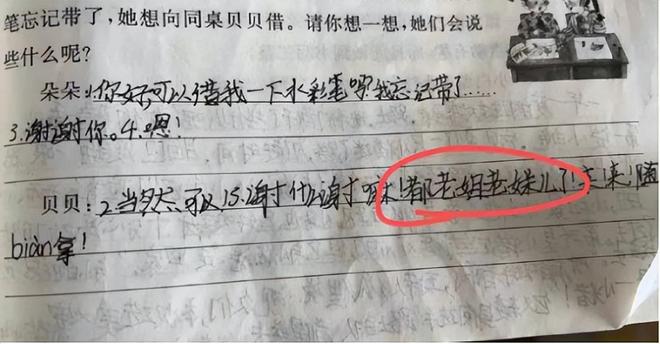 笔忘记带了，她想向同桌贝贝借。请你想一想，她们会说
些什么呢？
朵朵：1.你好，可以借我一下水彩笔吗？我忘记带了……
3.谢谢你。4.嗯！
贝贝：2.当然可以！5.谢什么谢嘛！都老姐老妹儿了！来来！随
biàn拿！